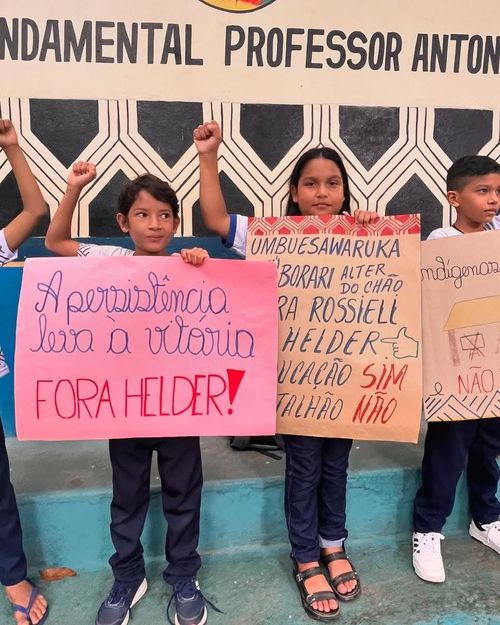 NDAMENTAL PROFESSOR ANTON
A persistência
leva à vitória
FORA HELDER!
UMBUESAWARUKA
BORARI ALTER
DO CHÃO
RA ROSSIELI
HELDER
UCAÇÃO SIM
TALHÃO NÃO
ndígenas
é NÃO